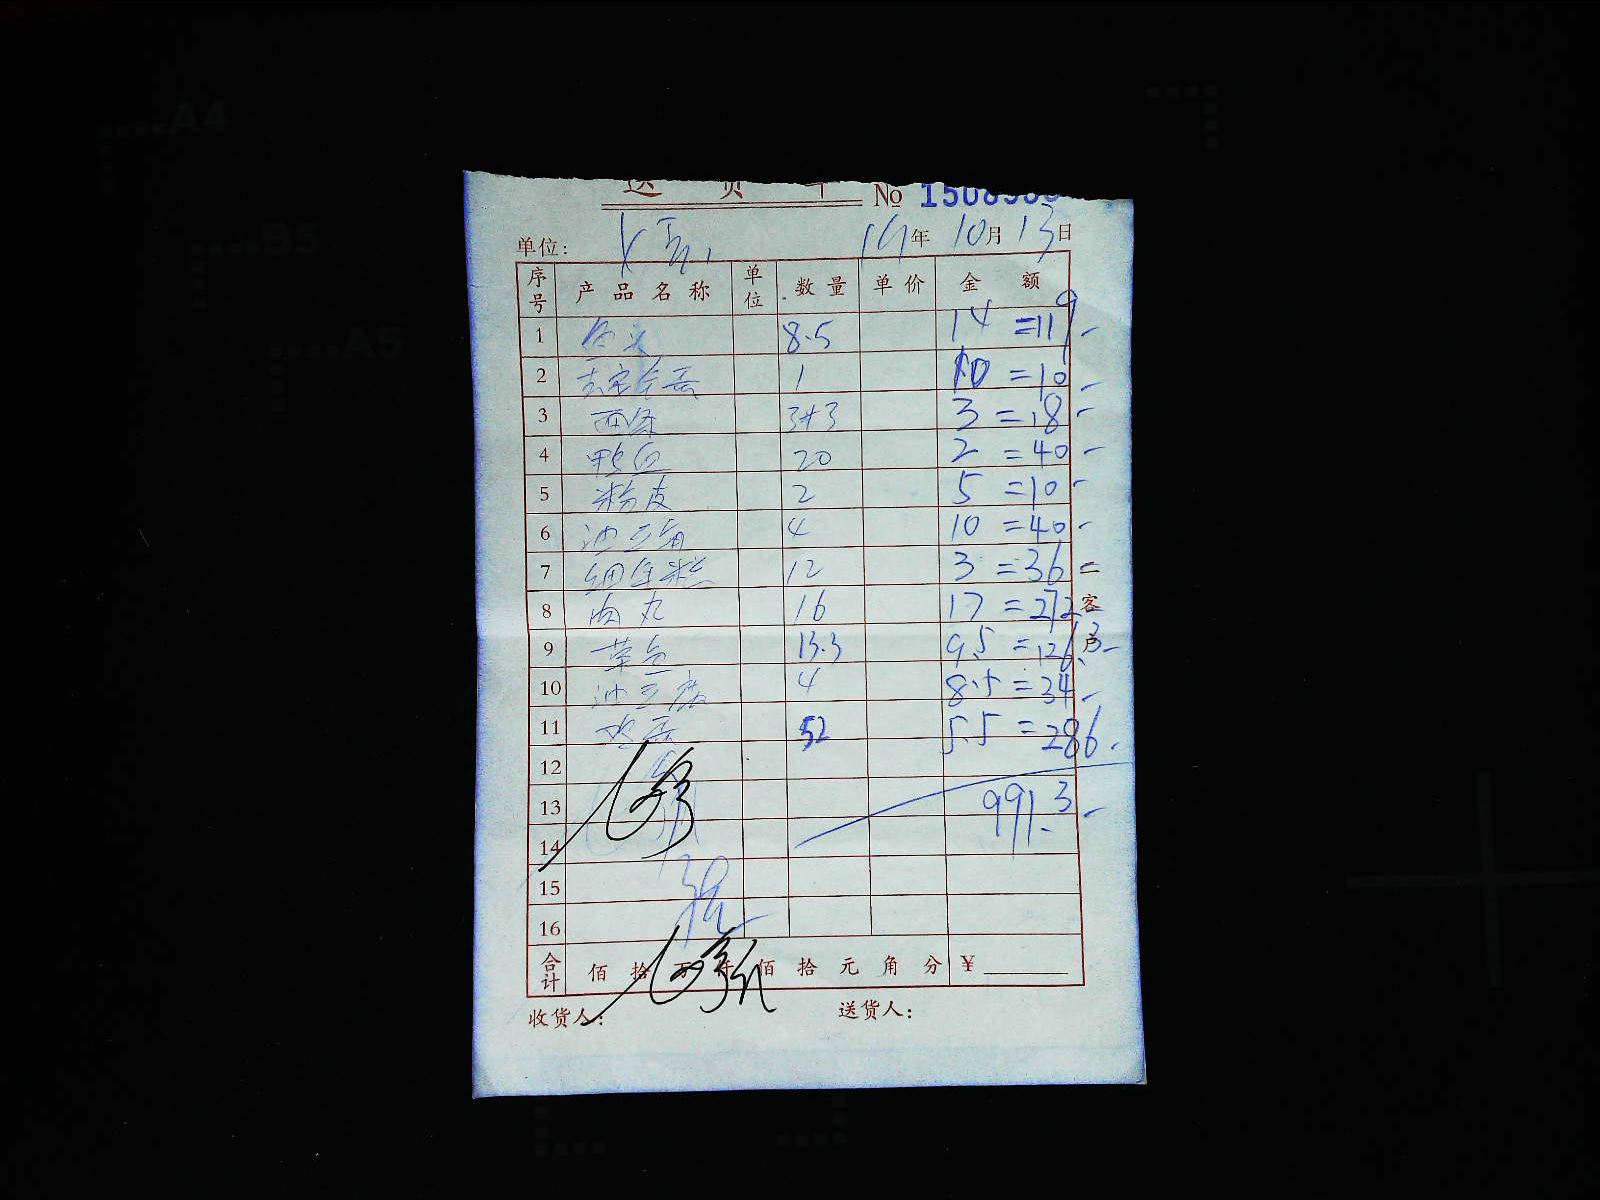 送货单 № 150898
单位: 19年 10月 13日
序号 产品名称 单位 数量 单价 金额
1 鱼头 8.5 14 =119-
2 1 10 =10-
3 面条 3+3 3 =18-
4 鸭血 20 2 =40-
5 粉皮 2 5 =10-
6 油三角 4 10 =40-
7 细年糕 12 3 =36-
8 肉丸 16 17 =272
9 草鱼 13.3 9.5 =126.3-
10 4 8.5 =34-
11 52 5.5 =286.
12
13 991.3-
14
15
16
合计 佰拾万仟佰拾元角分 ¥
收货人: 送货人:
客户
A4
B5
A5